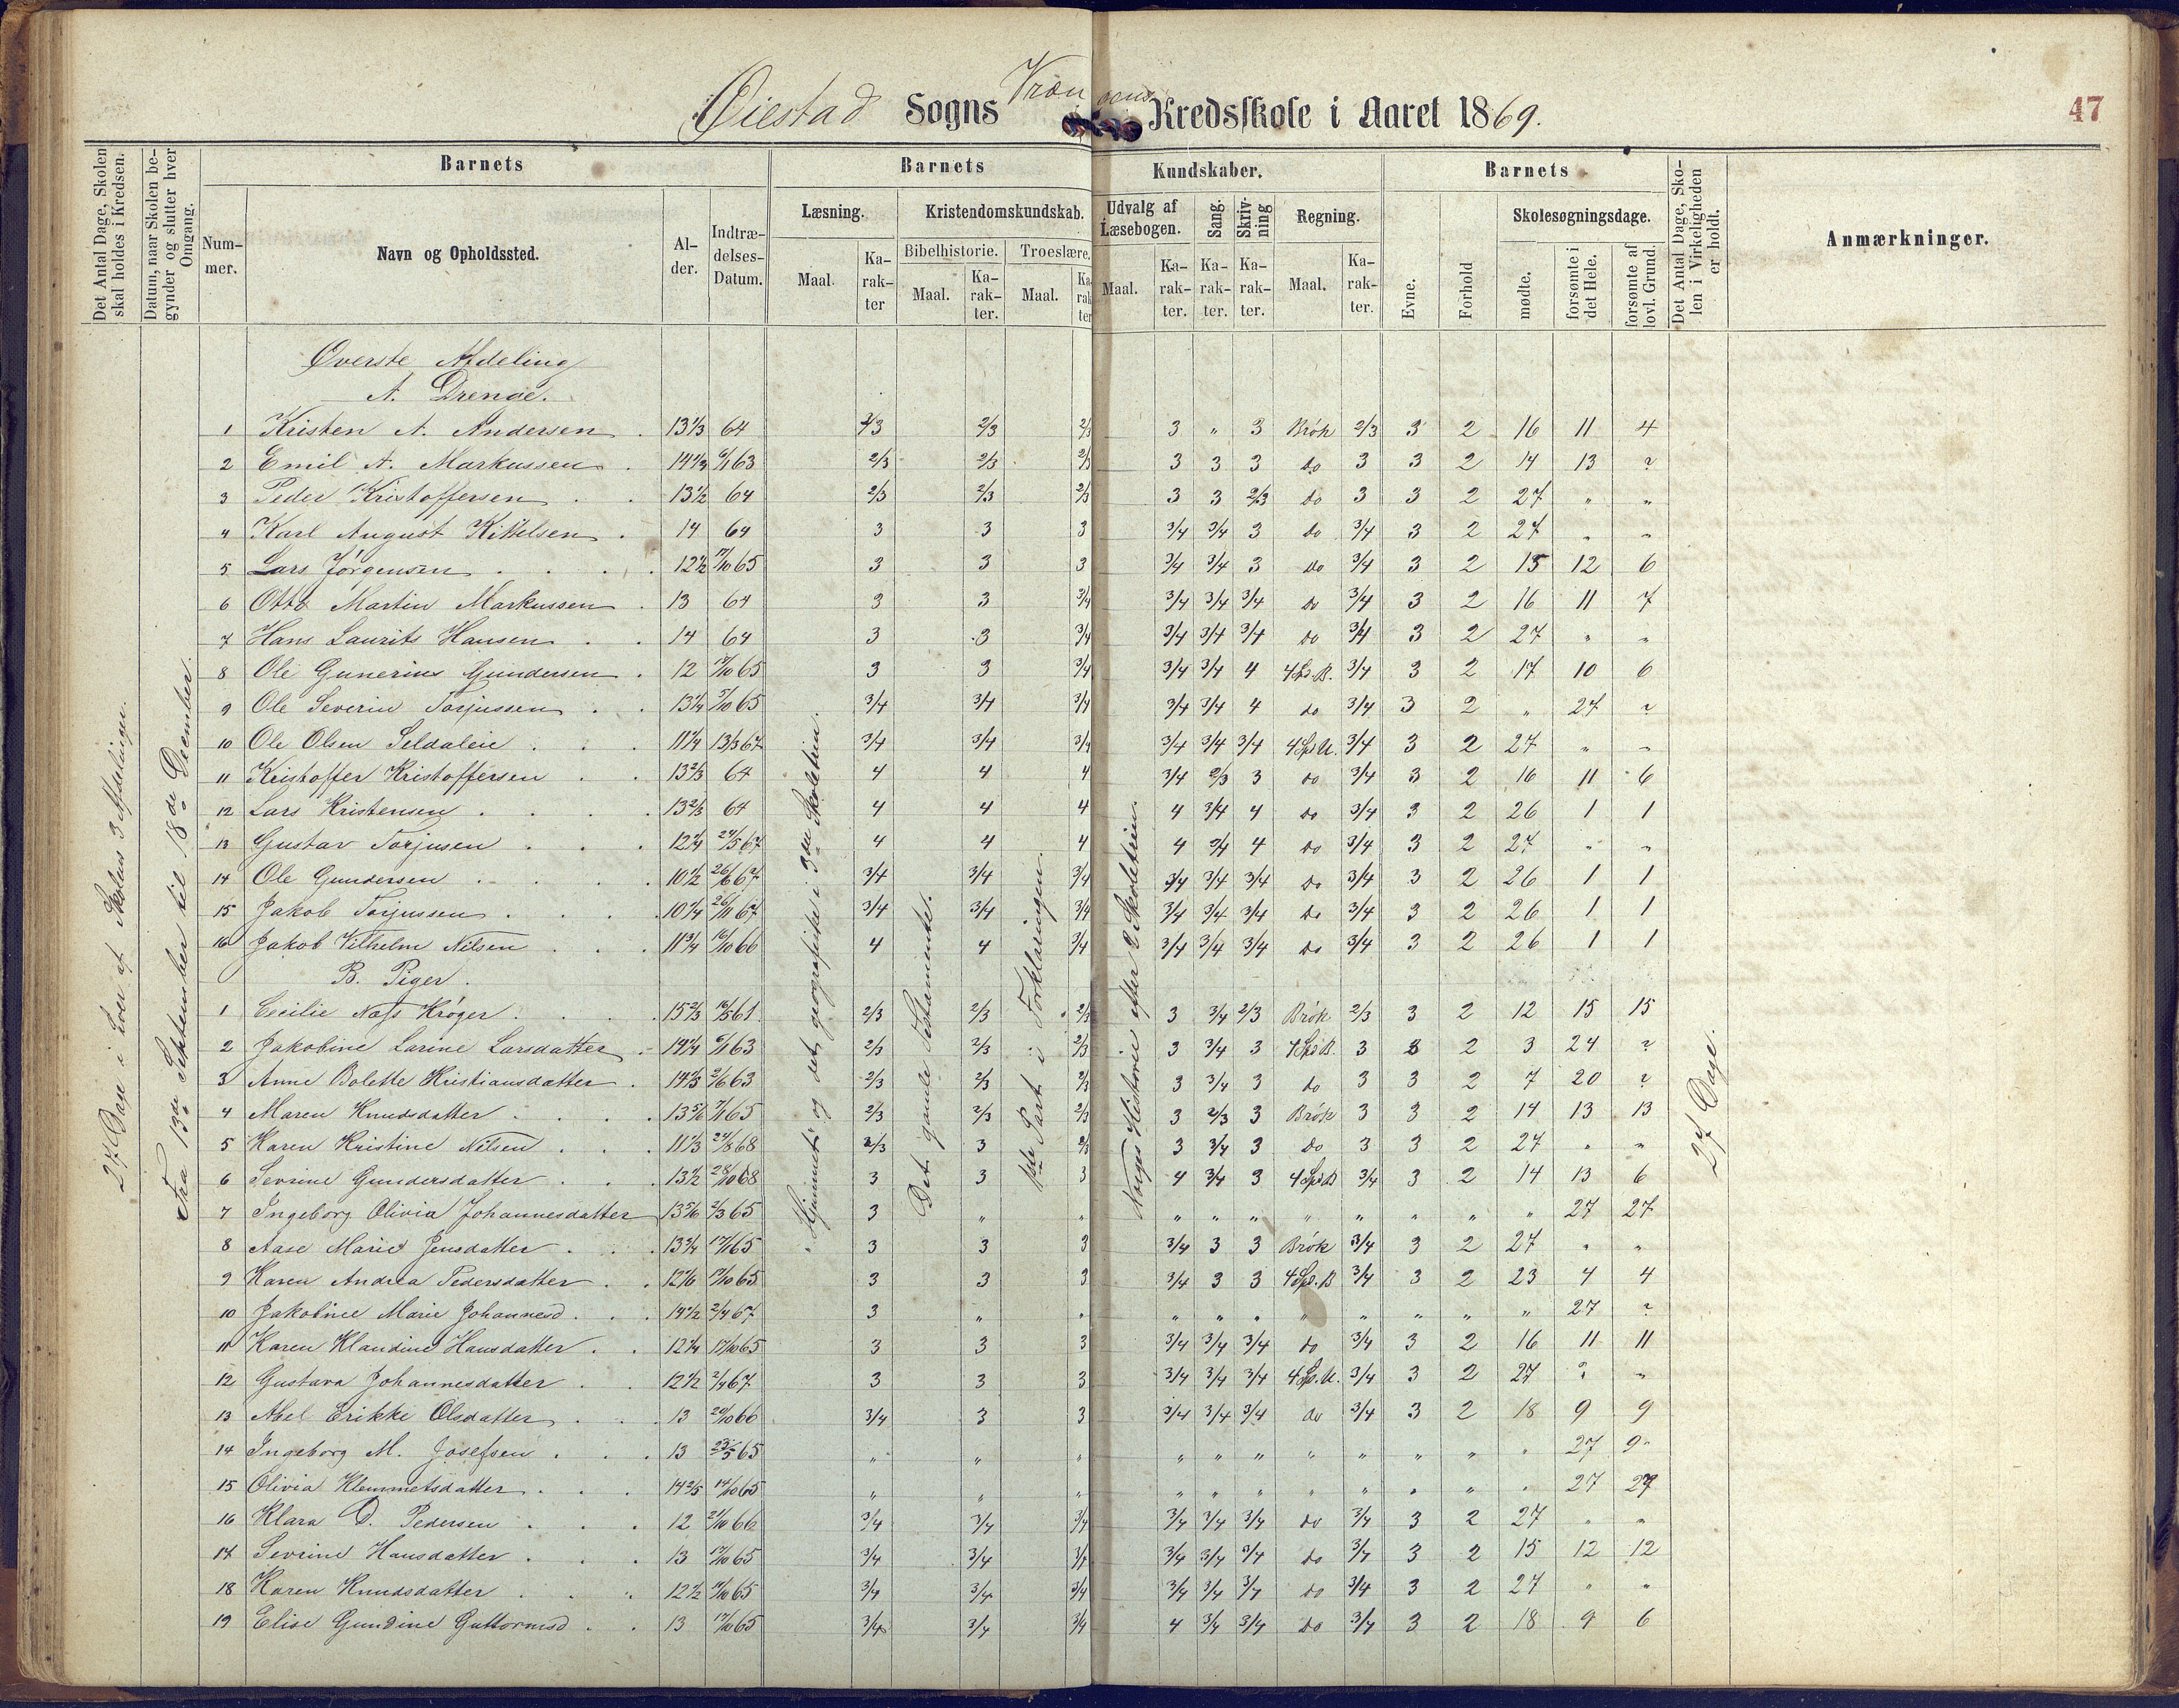 Øiestad Sogns Vrængens Kredsskole i Aaret 1869.
47
Det Antal Dage, Skolen skal holdes i Kredsen.
Datum, naar Skolen begynder og slutter hver Omgang.
Barnets
Barnets
Kundskaber.
Barnets
Det Antal Dage, Skolen i Virkeligheden er holdt.
Anmærkninger.
Nummer.
Navn og Opholdssted.
Alder.
Indtrædelses-Datum.
Læsning.
Kristendomskundskab.
Udvalg af Læsebogen.
Sang.
Skrivning
Regning.
Evne.
Forhold
Skolesøgningsdage.
Bibelhistorie.
Troeslære.
Maal.
Karakter
Maal.
Karakter.
Maal.
Karakter
Maal.
Karakter.
Karakter.
Karakter.
Maal.
Karakter.
mødte.
forsømte i det Hele.
forsømte af lovl. Grund.
27 Dage i hver af Skolens 3 Afdelinger.
Fra 13de September til 18de December.
"Hjemmet" og det geografiske i 3die Skoletrin.
Det gamle Testamente.
1ste Part i Forklaringen.
Norges Historie efter 2 Skoletrin.
27 Dage.
Øverste Afdeling
A. Drenge.
1 Kristen A. Andersen 13 1/3 64 2/3 2/3 2/3 3 " 3 Brök 2/3 3 2 16 11 4
2 Emil A. Markussen 14 1/3 6/1 63 2/3 2/3 2/3 3 3 3 do 3 3 2 14 13 ?
3 Peder Kristoffersen 13 1/2 64 2/3 2/3 2/3 3 3 2/3 do 3 3 2 27 " "
4 Karl August Kittelsen 14 64 3 3 3 3/4 3/4 3 do 3/4 3 2 27 " "
5 Lars Jørgensen 12 1/2 17/10 65 3 3 3 3/4 3/4 3 do 3/4 3 2 15 12 6
6 Otto Martin Markussen 13 64 3 3 3/4 3/4 3/4 3/4 do 3/4 3 2 16 11 7
7 Hans Laurits Hansen 14 64 3 3 3/4 3/4 3/4 3/4 do 3/4 3 2 27 " "
8 Ole Gunerius Gundersen 12 17/10 65 3 3 3/4 3/4 3/4 4 4 Sp. B. 3/4 3 2 17 10 6
9 Ole Severin Torjussen 13 1/4 65 3/4 3/4 3/4 3/4 3/4 4 do 3/4 3 2 " 27 ?
10 Ole Olsen Seldalen 11 1/4 13/3 67 3/4 3/4 3/4 3/4 3/4 3/4 4 Sp U. 3/4 3 2 27 " "
11 Kristoffer Kristoffersen 13 2/3 64 4 4 4 3/4 2/3 3 do 3/4 3 2 16 11 6
12 Lars Kristensen 13 2/3 64 4 4 4 4 3/4 4 do 3/4 3 2 26 1 1
13 Gustav Torjusen 12 1/4 24/5 67 4 4 4 4 3/4 4 do 3/4 3 2 27 " "
14 Ole Gundersen 10 1/2 26/6 67 3/4 3/4 3/4 3/4 3/4 3/4 do 3/4 3 2 26 1 1
15 Jakob Torjussen 10 1/4 26/10 67 3/4 3/4 3/4 3/4 3/4 3/4 do 3/4 3 2 26 1 1
16 Jakob Vilhelm Nilsen 11 3/4 16/10 66 4 4 3/4 3/4 3/4 3/4 do 3/4 3 2 26 1 1
B. Piger.
1 Cecilie Næss Krøger 15 2/3 16/5 61 2/3 2/3 2/3 3 3/4 2/3 Brök 2/3 3 2 12 15 15
2 Jakobine Larine Larsdatter 14 1/4 6/1 63 2/3 2/3 2/3 3 3/4 3 4 Sp. B. 3 3 2 3 24 ?
3 Anne Bolette Kristiansdatter 2/6 63 2/3 2/3 2/3 3 3/4 3 do 3 3 2 7 20 ?
4 Maren Knudsdatter 13 5/6 65 2/3 2/3 2/3 3 2/3 3 Brök 3 3 2 14 13 13
5 Karen Kristine Nilsen 11 1/3 24/8 68 2/3 3 2/3 3 3/4 3 do 3 3 2 27 " "
6 Sevrine Gundersdatter 13 1/2 28/10 68 3 3 3 4 3/4 3 4 Sp. B 3/4 3 2 14 13 6
7 Ingeborg Olivia Johannesdatter 13 5/6 2/3 65 3 " " " " " " " " " " 27 27
8 Aase Marie Jensdatter 13 3/4 65 3 3 3 3/4 3 3 Brök 3/4 3 2 27 " "
9 Karen Andrea Pedersdatter 12 1/6 17/10 65 3 3 3 3/4 3 3 4 Sp. B 3/4 3 2 23 4 4
10 Jakobine Marie Johannesd. 14 1/2 2/4 67 3 " " " " " " " " " " 27 ?
11 Karen Klaudine Hansdatter 12 1/4 17/10 65 3 3 3 3/4 3/4 3/4 do 3/4 3 2 16 11 11
12 Gustava Johannesdatter 12 1/2 2/4 67 3 3 3 3/4 3/4 3/4 4 Sp. U. 3/4 3 2 27 " "
13 Abel Erikke Olsdatter 13 20/10 66 3/4 3 3 3/4 3/4 3/4 do 3/4 3 2 18 9 9
14 Ingeborg M. Josefsen 13 23/5 65 " " " " " " " " " " " 27 9
15 Olivia Klemmetsdatter 14 2/5 65 " " " " " " " " " " " 27 27
16 Klara D. Pedersen 12 21/10 66 3/4 3/4 3/4 3/4 3/4 3/4 do 3/4 3 2 27 " "
17 Sevrine Hansdatter 13 17/10 65 3/4 3/4 3/4 3/4 3/4 3/4 do 3/4 3 2 15 12 12
18 Karen Knudsdatter 12 1/2 65 3/4 3/4 3/4 3/4 3/4 3/4 do 3/4 3 2 27 " "
19 Elise Gundine Guttormsd. 13 17/10 65 3/4 3/4 3/4 4 3/4 3/4 do 3/4 3 2 18 9 6